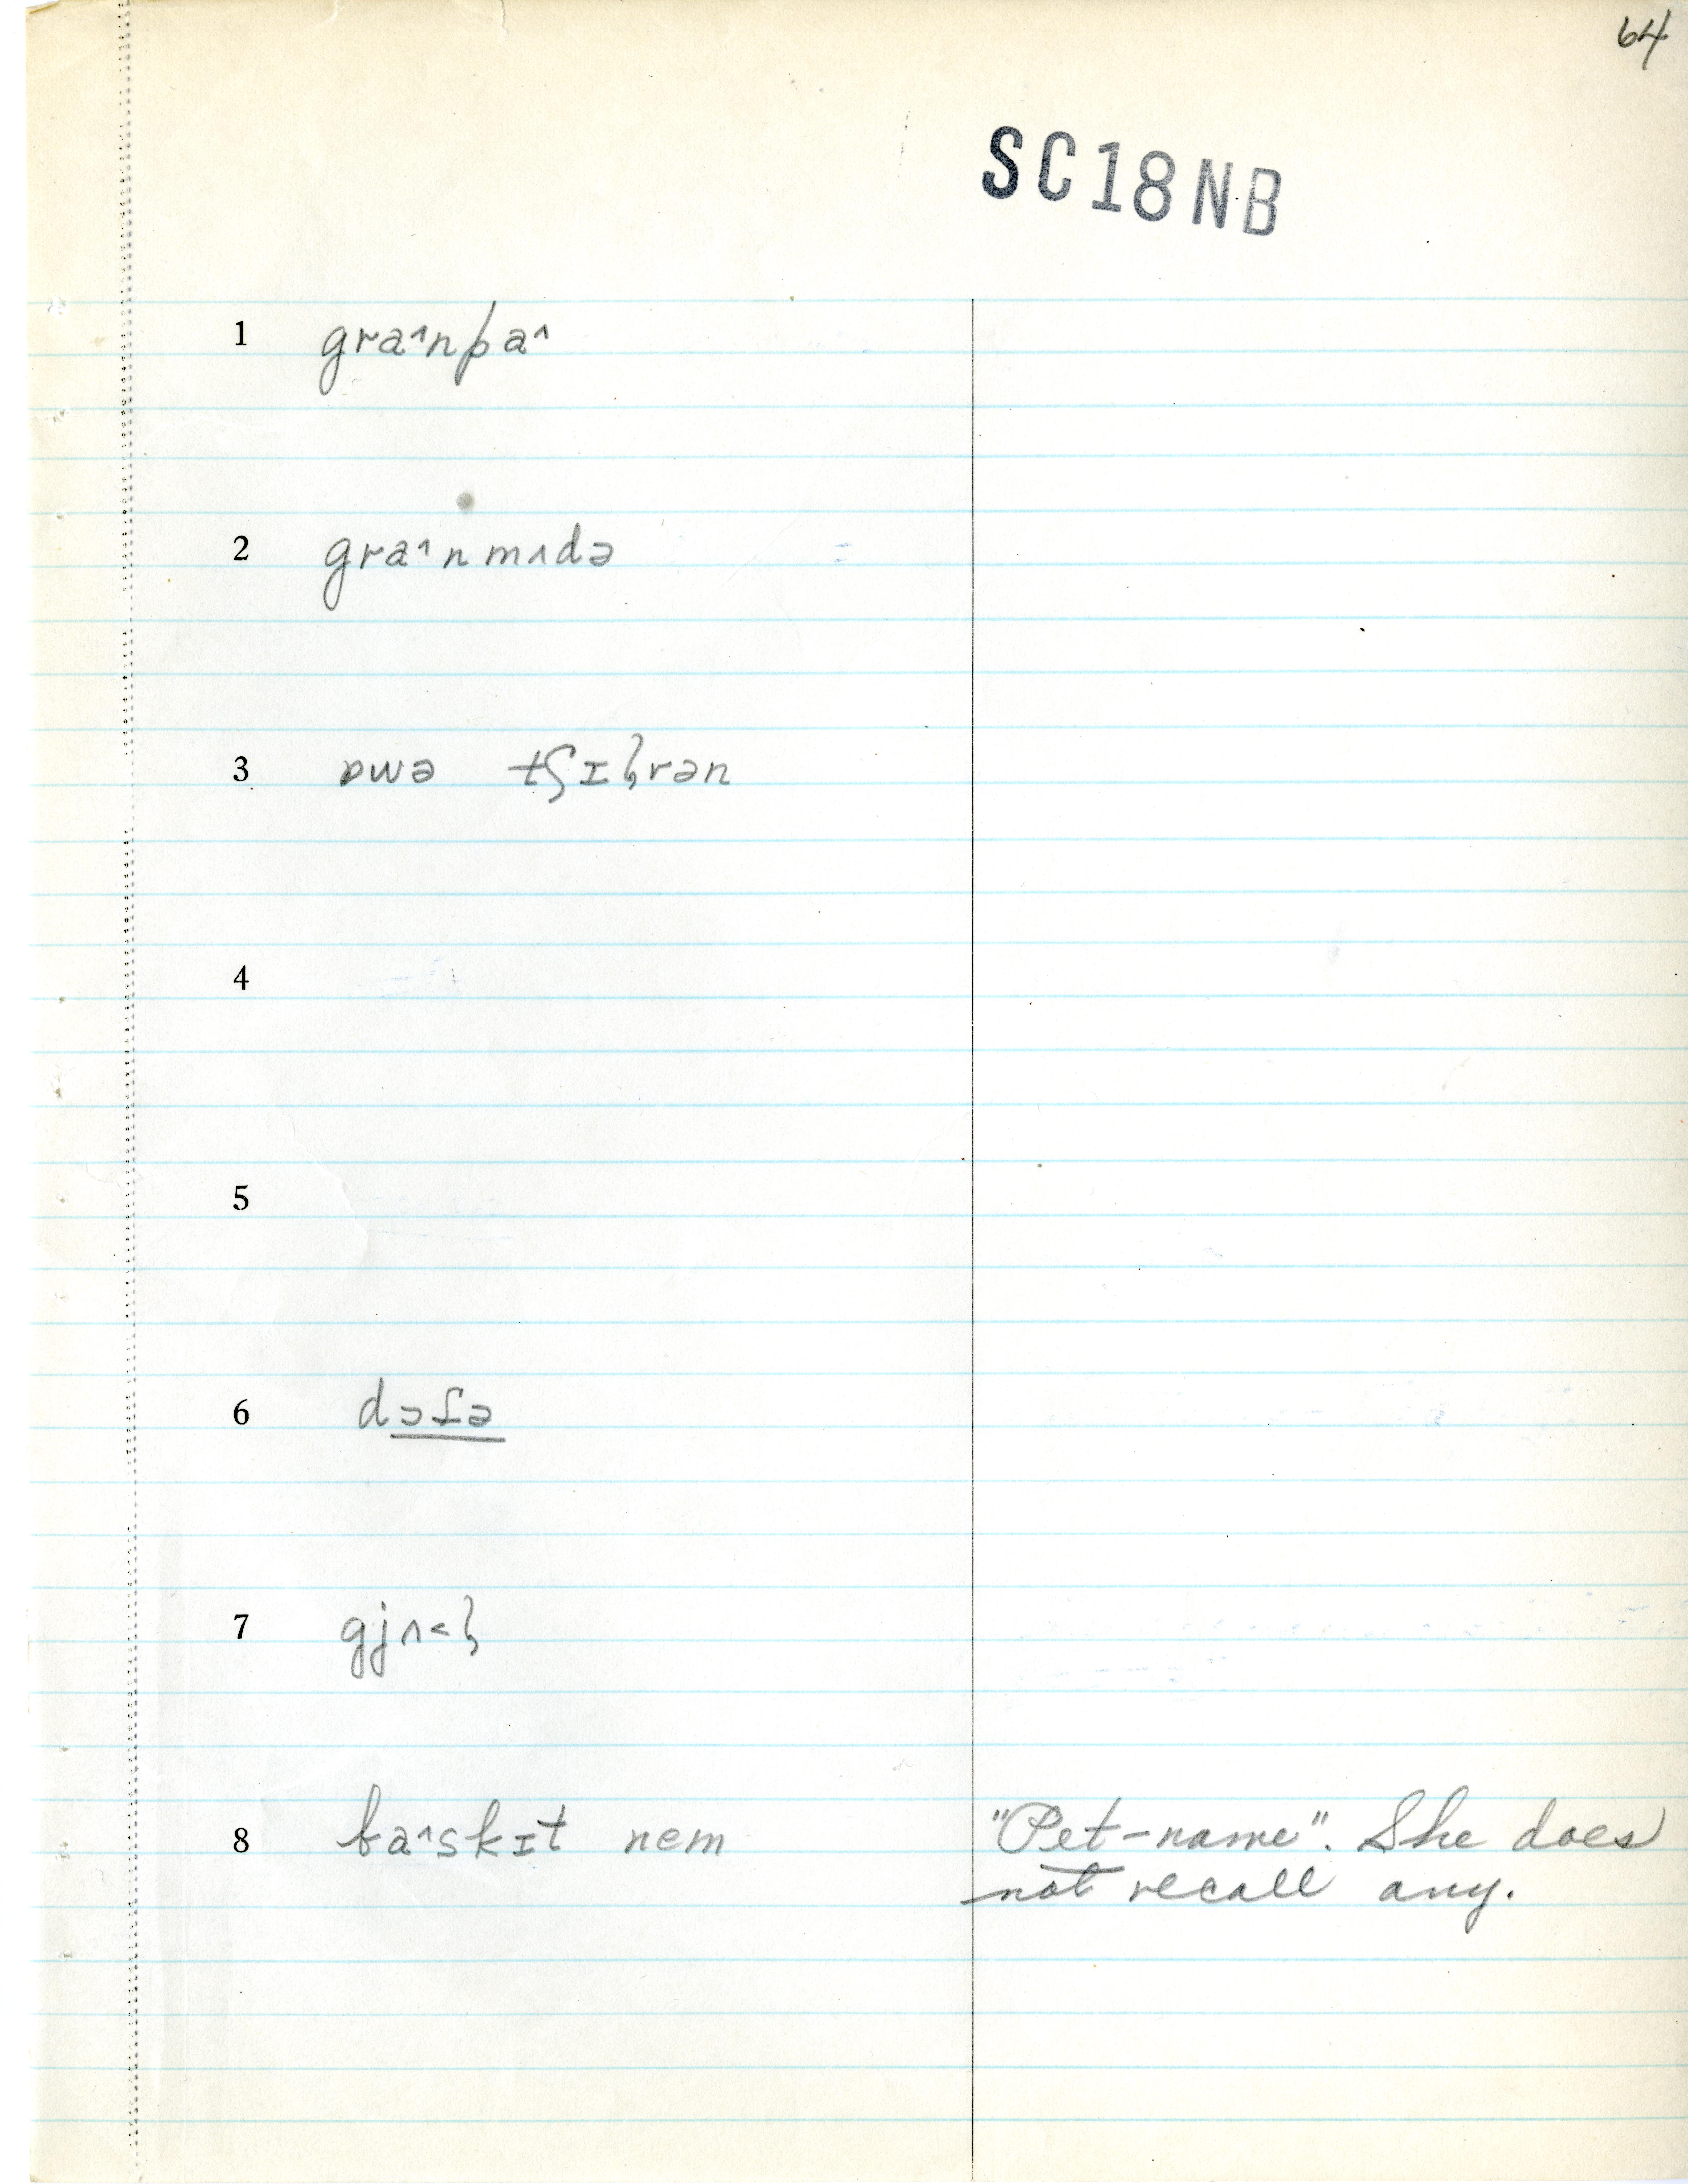 64
SC18NB
1 graˆnpaˆ
2 graˆnmʌdə
3 ɒwə tʃɪlrən
4
5
6 dɔtə
7 gjʌ<l
8 baˆskɪt nem "Pet-name". She does
not recall any.